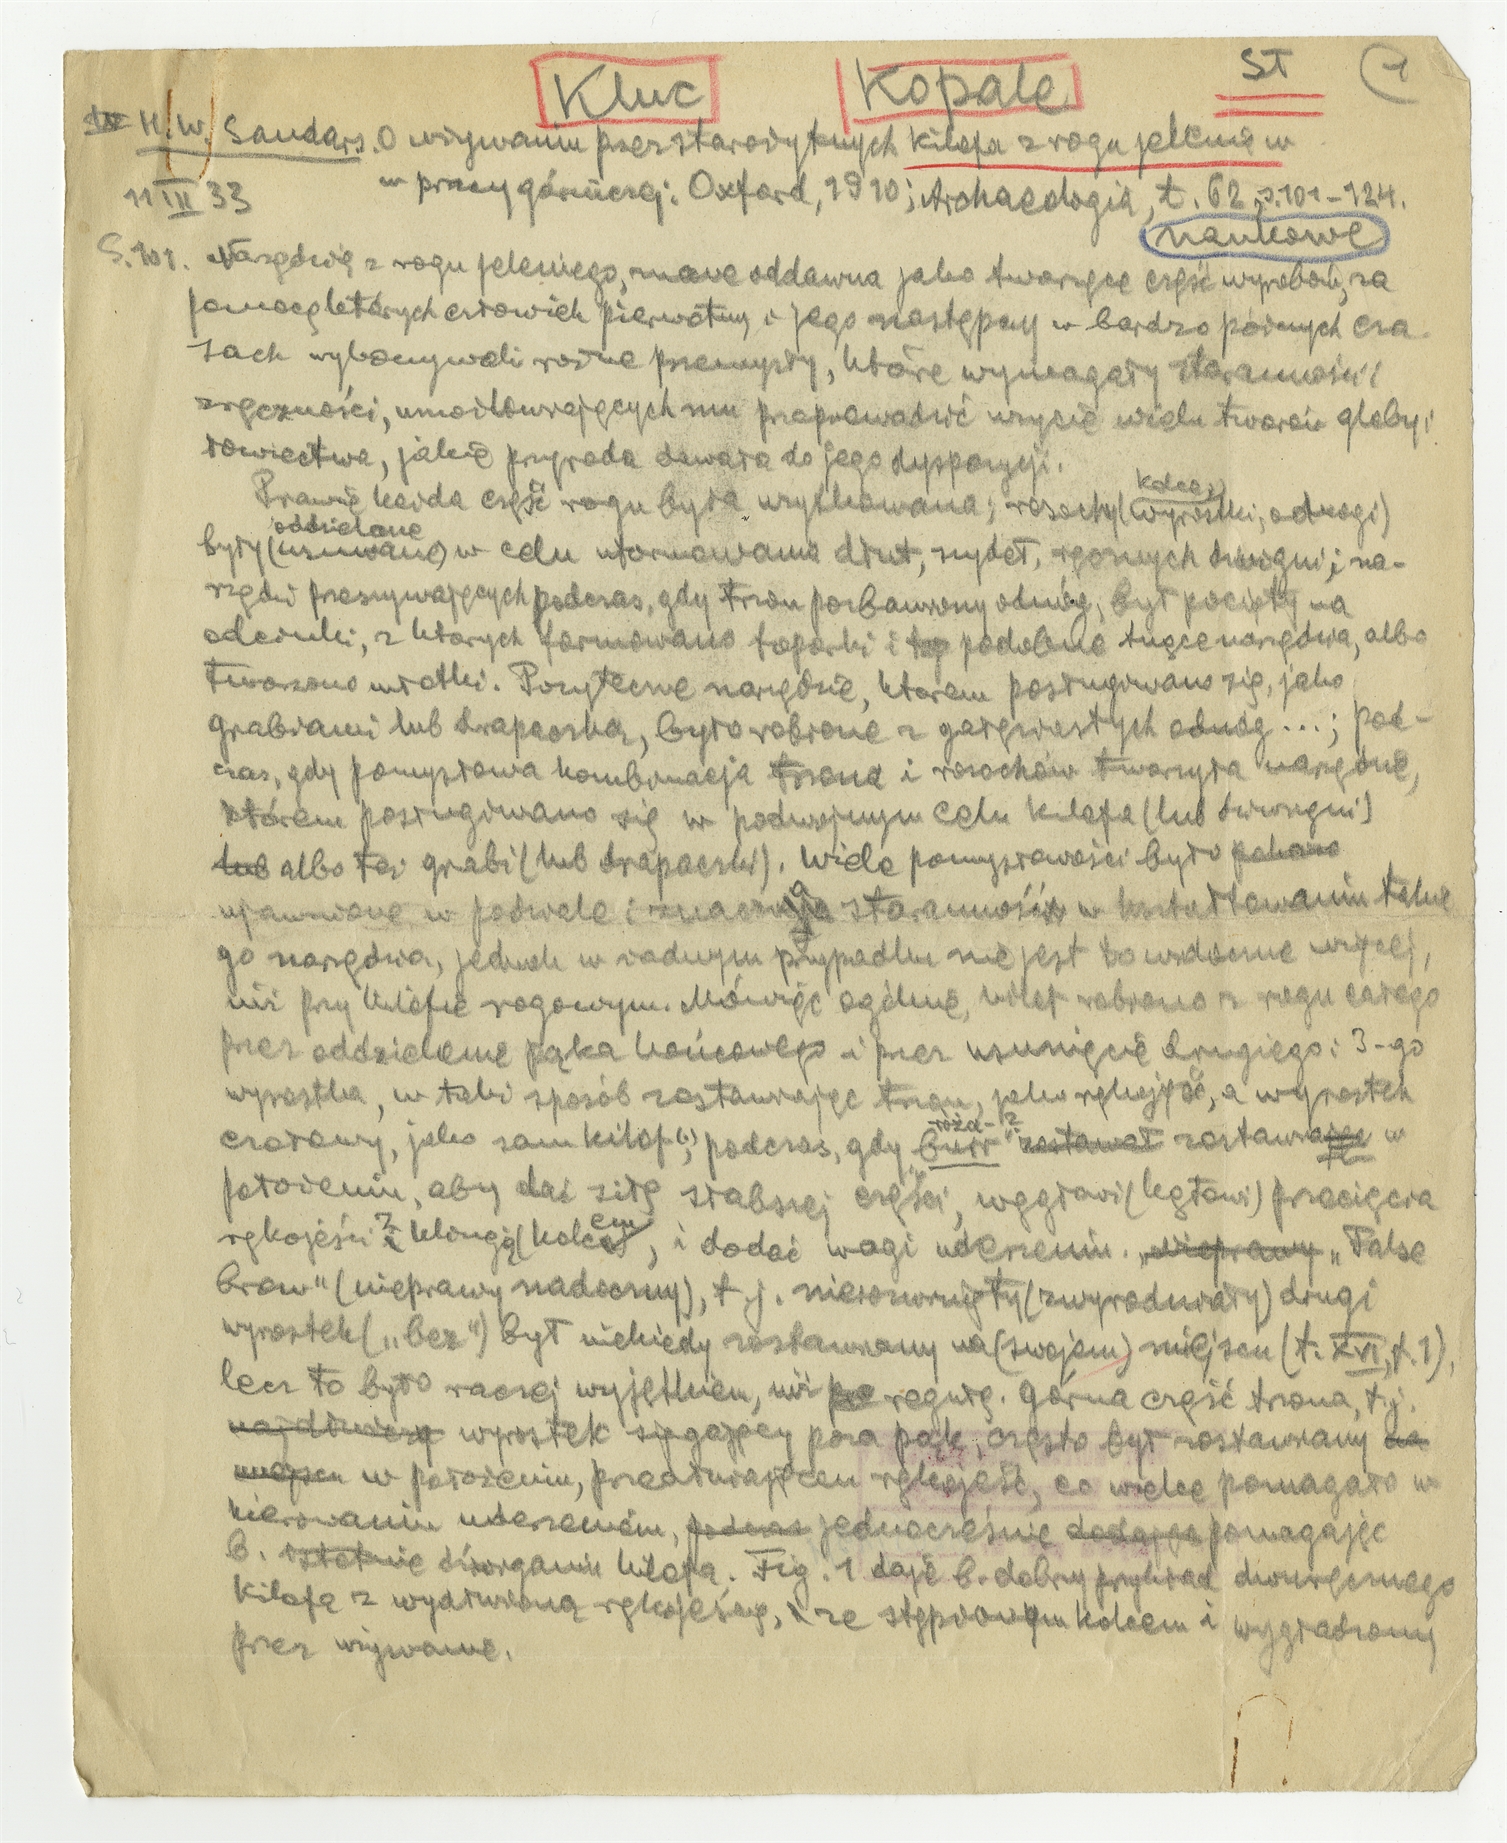 Kluc Kopale ST 1
H. W. Sandars. O używaniu przez starożytnych kilofa z rogu jelenia w
11 III 33 w pracy górniczej. Oxford, 1910; Archaeologia, t. 62, s. 101-124.
naukowe
S. 101. Narzędzia z rogu jeleniego, znane oddawna jako tworzące część wyrobów, za
pomocą których człowiek pierwotny i jego następcy w bardzo późnych cza-
sach wykonywali różne przemysły, które wymagały staranności i
zręczności, umożliwiających mu przeprowadzić użycie wielu tworów gleby i
łowiectwa, jakie przyroda dawała do jego dyspozycji.
Prawie każda część rogu była użytkowana; rosochy (wyrostki, odnogi)
kolce,
były (usuwane) w celu uformowania dłut, szydeł, ręcznych dźwigni i na-
oddzielane
rzędzi przeszywających podczas, gdy trzon pozbawiony odnóg, był pocięty na
odcinki, z których formowano toporki i podobne tnące narzędzia, albo
tworzono młotki. Pożyteczne narzędzie, którem posługiwano się, jako
grabiami lub drapaczką, było robione z gałęzistych odnóg ...; pod-
czas, gdy pomysłowa kombinacja trzona i rosochów tworzyła narzędzie,
którem posługiwano się w podwójnym celu kilofa (lub dźwigni)
lub albo też grabi (lub drapaczki). Wiele pomysłowości było
ujawnione w podziele i znaczna staranność w kształtowaniu takie
go narzędzia, jednak w żadnym przypadku nie jest to widoczne więcej,
niż przy kilofie rogowym. Mówiąc ogólnie, kilof robiono z rogu całego
przez oddzielenie pąka końcowego i przez usunięcie drugiego i 3-go
wyrostka, w taki sposób zostawiając trzon, jako rękojeść, a wyrostek
czołowy, jako sam kilof; podczas, gdy "burr" zostawał zostawiając w
róża
położeniu, aby dać siłę słabszej części, węgłowi (kątowi) przecięcia
rękojeści z klingą (kolcem), i dodać wagi uderzeniu. „nieprawy „False
brow" (nieprawy nadoczny), t. j. nierozwinięty (zwyrodniały) drugi
wyrostek („bez") był niekiedy zostawiany na (swojem) miejscu (t. XVI, f. 1),
lecz to było raczej wyjątkiem, niż regułą. Górna część trzona, t. j.
najdłuższy wyrostek sięgający poza pąk, często był zostawiany na
miejscu w położeniu, przedłużającem rękojeść, co wielce pomagało w
kierowaniu uderzeniem, podczas jednocześnie dodając pomagając
b. istotnie dźwiganiu kilofa. Fig. 1 daje b. dobry przykład dwuręcznego
kilofa z wydłużoną rękojeścią, ze stępionym kolcem i wygładzony
przez używanie.